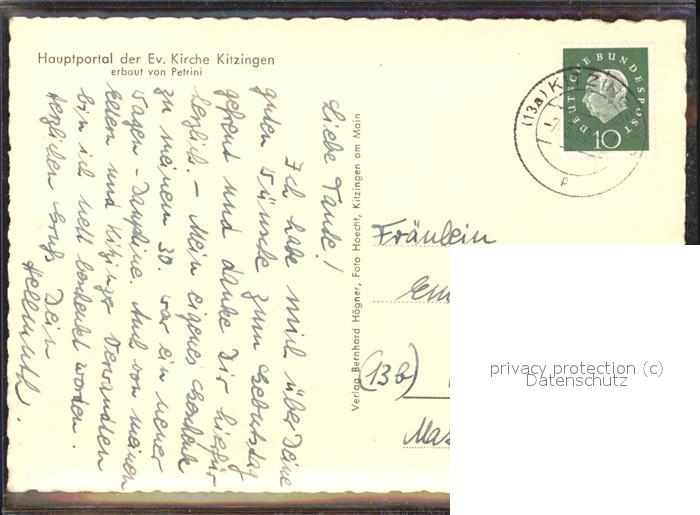 Hauptportal der Ev. Kirche Kitzingen
erbaut von Petrini
Liebe Tante!
Ich habe mich über Deine
guten Wünsche zum Geburtstag
gefreut und danke Dir hiefür
herzlich. - Mein eigenes Geschenk
zu meinem 30. war ein neuer
Wagen - Dauphine. Auch von meinen
Eltern und Kitzinger Verwandten
bin ich nett beschenkt worden.
Herzlichen Gruß Dein
Hellmuth!
Verlag Bernhard Högner, Foto Hoecht, Kitzingen am Main
DEUTSCHE BUNDESPOST
10
(13a) KITZING
Fräulein
Em
(13b)
Mas
privacy protection (c)
Datenschutz